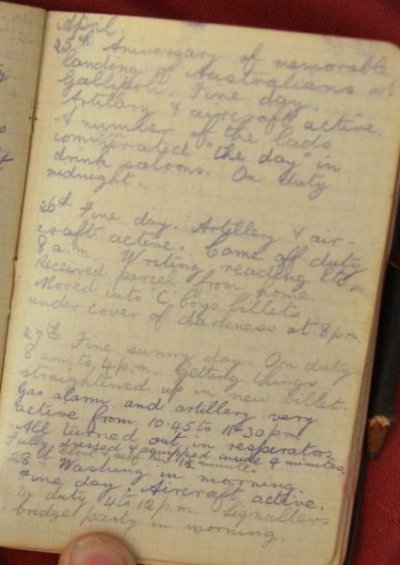 April
25th Aniversary of memorable
landing of Australians at
Gallipoli. Fine day.
Artillery & aircraft active.
A number of the lads
commerated "the day" in
drink saloons. On duty
midnight.
26th Fine day. Artillery & air-
craft active. Come off duty
8 a.m. Writing reading Etc
Received parcel from home.
Moved into C boys billets
under cover of darkness at 8 p.m.
27th Fine sunny day. On duty
8 am to 4 p.m. Getting things
straightened up in new billet.
Gas alarm and artillery very
active from 10.45 to 11.30 pm
All turned out in respirators
Fully dressed & equipped inside 4 minutes.
28th Washing in morning
Fine day. Aircraft active.
On duty 4 to 12 p.m. Signallers
bridge party in morning.